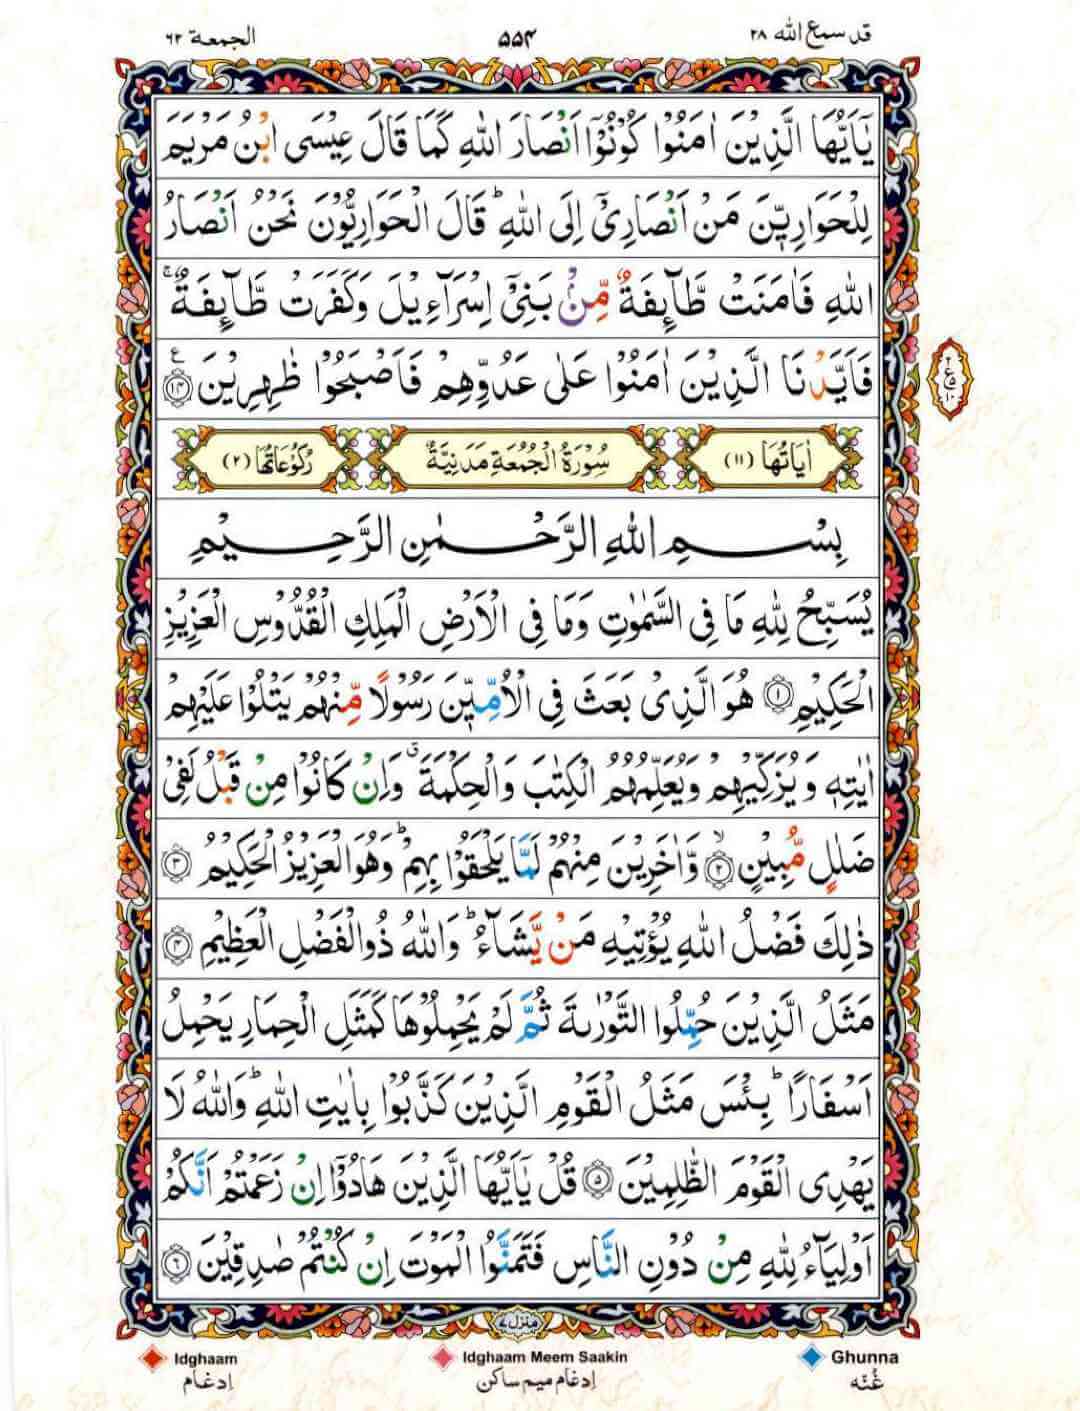 قد سمع الله ٢٨
٥٥٤
الجمعة ٦٢
يٰۤاَيُّهَا الَّذِيْنَ اٰمَنُوْا كُوْنُوْۤا اَنْصَارَ اللّٰهِ كَمَا قَالَ عِيْسَى ابْنُ مَرْيَمَ
لِلْحَوَارِيّٖنَ مَنْ اَنْصَارِىْۤ اِلَى اللّٰهِ ؕ قَالَ الْحَوَارِيُّوْنَ نَحْنُ اَنْصَارُ
اللّٰهِ فَاٰمَنَتْ طَّآىِٕفَةٌ مِّنْۢ بَنِىْۤ اِسْرَآءِيْلَ وَكَفَرَتْ طَّآىِٕفَةٌ ۚ
فَاَيَّدْنَا الَّذِيْنَ اٰمَنُوْا عَلٰى عَدُوِّهِمْ فَاَصْبَحُوْا ظٰهِرِيْنَ ﴿۱۴﴾ ع
اٰيَاتُهَا (١١) سُوْرَةُ الْجُمُعَةِ مَدَنِيَّةٌ رُكُوْعَاتُهَا (٢)
٢ ع ٥ ١٠
بِسْمِ اللّٰهِ الرَّحْمٰنِ الرَّحِيْمِ
يُسَبِّحُ لِلّٰهِ مَا فِى السَّمٰوٰتِ وَمَا فِى الْاَرْضِ الْمَلِكِ الْقُدُّوْسِ الْعَزِيْزِ
الْحَكِيْمِ ﴿۱﴾ هُوَ الَّذِىْ بَعَثَ فِى الْاُمِّيّٖنَ رَسُوْلًا مِّنْهُمْ يَتْلُوْا عَلَيْهِمْ
اٰيٰتِهٖ وَيُزَكِّيْهِمْ وَيُعَلِّمُهُمُ الْكِتٰبَ وَالْحِكْمَةَ ۗ وَاِنْ كَانُوْا مِنْ قَبْلُ لَفِىْ
ضَلٰلٍ مُّبِيْنٍ ۙ﴿۲﴾ وَّاٰخَرِيْنَ مِنْهُمْ لَمَّا يَلْحَقُوْا بِهِمْ ؕ وَهُوَ الْعَزِيْزُ الْحَكِيْمُ ﴿۳﴾
ذٰلِكَ فَضْلُ اللّٰهِ يُؤْتِيْهِ مَنْ يَّشَآءُ ؕ وَاللّٰهُ ذُو الْفَضْلِ الْعَظِيْمِ ﴿۴﴾
مَثَلُ الَّذِيْنَ حُمِّلُوا التَّوْرٰىةَ ثُمَّ لَمْ يَحْمِلُوْهَا كَمَثَلِ الْحِمَارِ يَحْمِلُ
اَسْفَارًا ؕ بِئْسَ مَثَلُ الْقَوْمِ الَّذِيْنَ كَذَّبُوْا بِاٰيٰتِ اللّٰهِ ؕ وَاللّٰهُ لَا
يَهْدِى الْقَوْمَ الظّٰلِمِيْنَ ﴿۵﴾ قُلْ يٰۤاَيُّهَا الَّذِيْنَ هَادُوْۤا اِنْ زَعَمْتُمْ اَنَّكُمْ
اَوْلِيَآءُ لِلّٰهِ مِنْ دُوْنِ النَّاسِ فَتَمَنَّوُا الْمَوْتَ اِنْ كُنْتُمْ صٰدِقِيْنَ ﴿۶﴾
منزل ٧
Idghaam Idghaam Meem Saakin Ghunna
ادغام ادغام ميم ساكن غُنّه